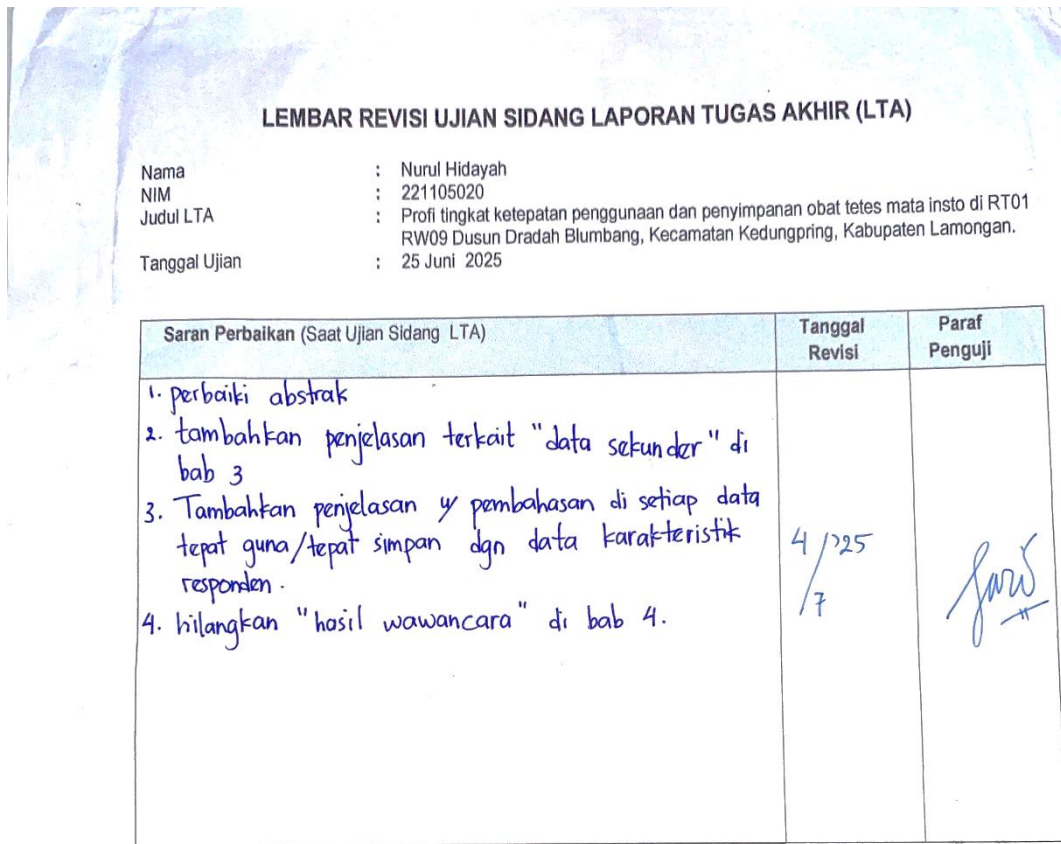 LEMBAR REVISI UJIAN SIDANG LAPORAN TUGAS AKHIR (LTA)
Nama : Nurul Hidayah
NIM : 221105020
Judul LTA : Profi tingkat ketepatan penggunaan dan penyimpanan obat tetes mata insto di RT01
RW09 Dusun Dradah Blumbang, Kecamatan Kedungpring, Kabupaten Lamongan.
Tanggal Ujian : 25 Juni 2025
Saran Perbaikan (Saat Ujian Sidang LTA) Tanggal Revisi Paraf Penguji
1. perbaiki abstrak
2. tambahkan penjelasan terkait "data sekunder" di
bab 3
3. Tambahkan penjelasan y pembahasan di setiap data
tepat guna/tepat simpan dgn data karakteristik
responden.
4. hilangkan "hasil wawancara" di bab 4.
4/7